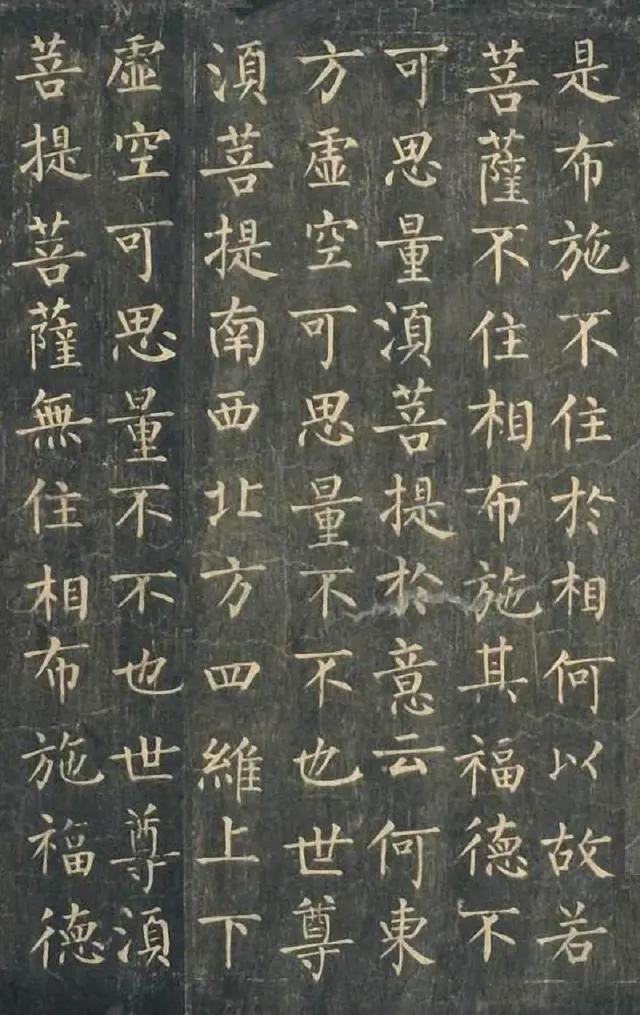 是布施不住於相何以故若
菩薩不住相布施其福德不
可思量須菩提於意云何東
方虛空可思量不不也世尊
須菩提南西北方四維上下
虛空可思量不不也世尊須
菩提菩薩無住相布施福德